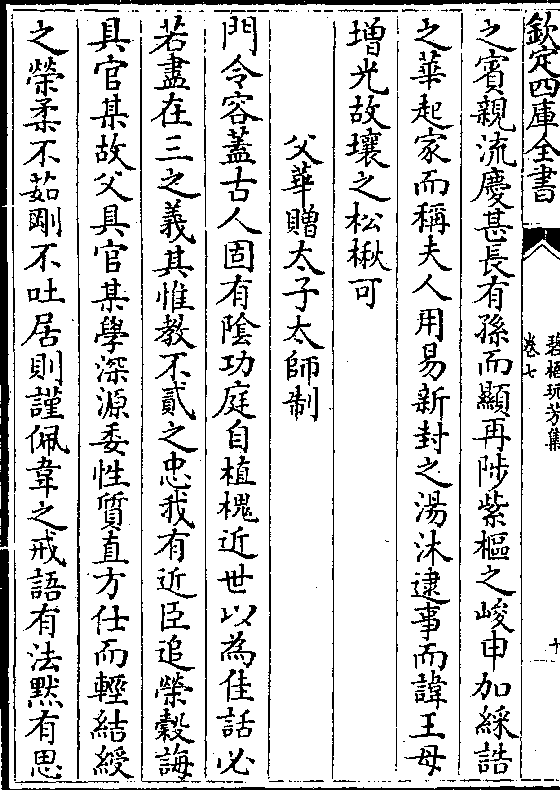 欽定四庫全書
碧梧玩芳集
卷七
十
之賓親流慶甚長有孫而顯再陟紫樞之峻申加綵誥
之華起家而稱夫人用易新封之湯沐逮事而諱王母
増光故壤之松楸可
父華贈太子太師制
門令容蓋古人固有陰功庭自植槐近世以為佳話必
若盡在三之義其惟教不貳之忠我有近臣追榮穀誨
具官某故父具官某學深源委性質直方仕而輕結綬
之榮柔不茹剛不吐居則謹佩韋之戒語有法默有思